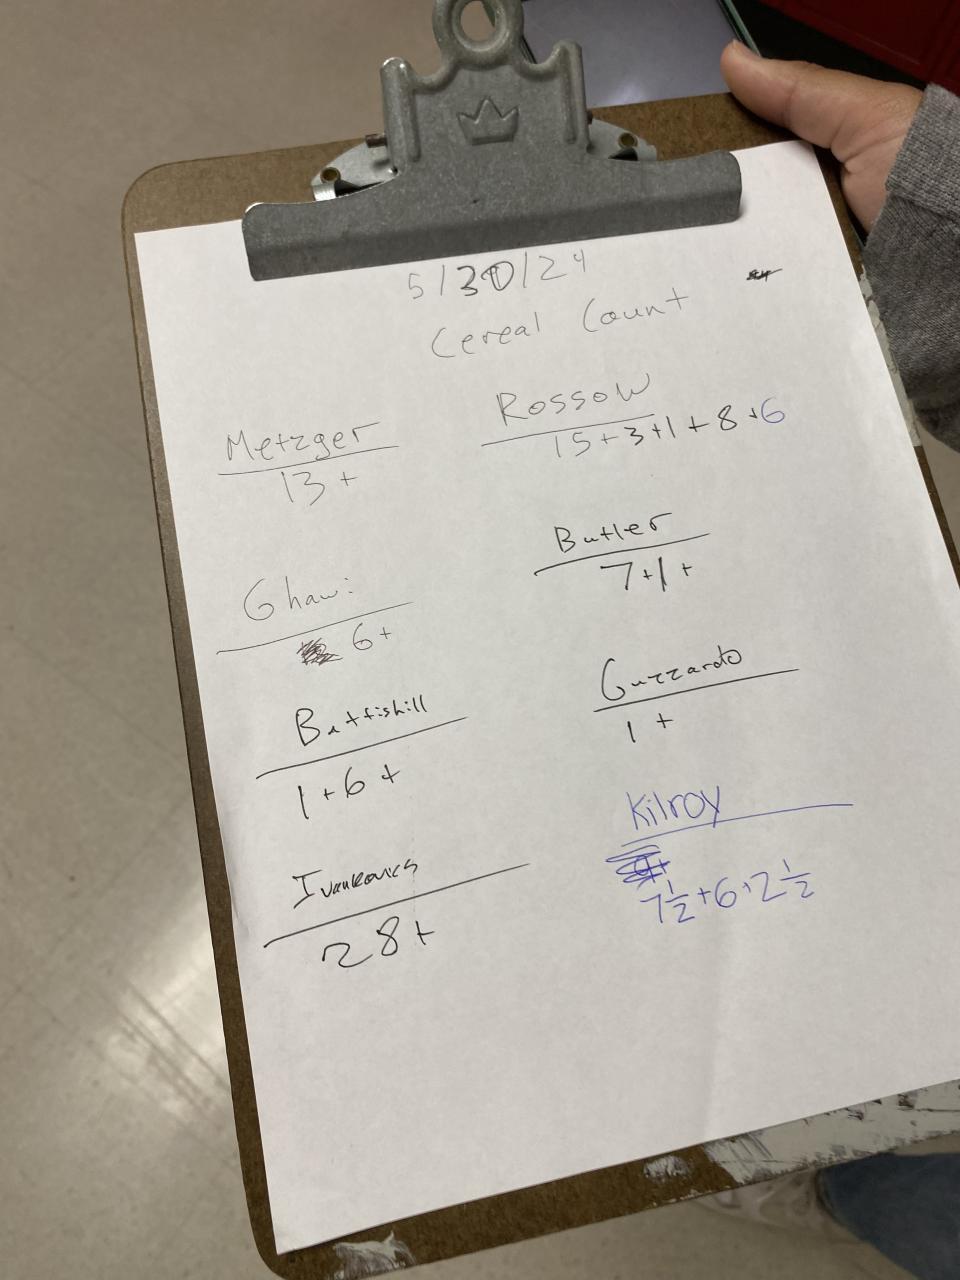 5/30/24
Cereal Count
Metzger
13 +
Rossow
15 + 3 + 1 + 8 + 6
Ghawi
6 +
Butler
7 + 1 +
Battishill
1 + 6 +
Guzzardo
1 +
Ivankovics
28 +
Kilroy
7 1/2 + 6 + 2 1/2